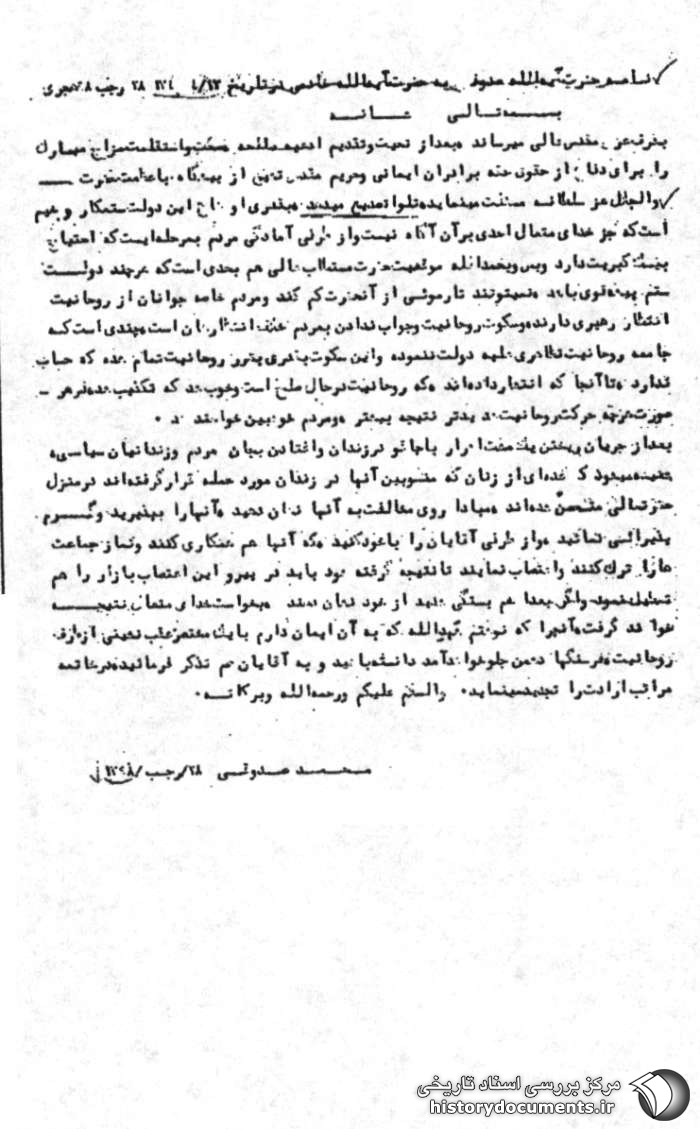 نامه حضرت آیه‌الله صدوقی به حضرت آیه‌الله خادمی در تاریخ ۲۸ رجب ۹۸ هجری
بسمه تعالی شانه
بشرف عرض مقدس عالی میرساند بعد از تحیت و تقدیم ادعیه خالصه صحت و استقامت مزاج مبارک
را برای دفاع از حقوق حقه برادران ایمانی و حریم مقدس تشیع از پیشگاه باعظمت حضرت
ذوالجلال عز سلطانه مسئلت مینماید تلوا تصدیع میدهد بقدری اوضاع این دولت ستمکار وخیم
است که جز خدای متعال احدی بر آن آگاه نیست و از طرفی آمادگی مردم بمرحله‌ایست که احتیاج
بیک کبریت دارد و بس و بحمدالله موقعیت حضرت مستطاب عالی هم بحدی است که هرچند دولت
ستم پیشه قوی باشد نمیتوانند تار موئی از آنحضرت کم کند و مردم خاصه جوانان از روحانیت
انتظار رهبری دارند و سکوت روحانیت و جواب ندادن بمردم خلاف انتظارشان است چندی است که
جامعه روحانیت تظاهری علیه دولت ننموده و این سکوت بقدری بضرر روحانیت تمام شده که حساب
ندارد تا آنجا که انتشار داده‌اند که روحانیت در حال صلح است و خوب شد که تکذیب شد در هر
صورت هرچه حرکت روحانیت شدیدتر نتیجه بیشتر و مردم خوشبین خواهند شد.
بعد از جریان ریختن یک مشت اشرار با چاقو در زندان و افتادن بجان مردم و زندانیان سیاسی
شنیده میشود که عده‌ای از زنان که منسوبین آنها در زندان مورد حمله قرار گرفته‌اند در منزل
حضرتعالی متحصن شده‌اند مبادا روی مخالفت به آنها نشان دهید آنها را بپذیرید و گرم
پذیرائی نمائید و از طرفی آقایان را با خود کنید که آنها هم همکاری کنند و نماز جماعت
ها را ترک کنند و اعتصاب نمایند تا نتیجه گرفته شود باید در پیرو این اعتصاب بازار را هم
تعطیل نمود و اگر بعدا هم بستگی شدید از خود نشان دهند بخواست خدای متعال نتیجه
خواهند گرفت آنچرا که نوشتم یشهدالله که به آن ایمان دارم با یک مختصر عقب نشینی از طرف
روحانیت فرسنگها دشمن جلو خواهد آمد دانسته باشید و به آقایان هم تذکر فرمائید در خاتمه
مراتب ارادت را تجدید مینماید. والسلام علیکم ورحمه‌الله وبرکاته.
محمد صدوقی ۲۸/رجب/۱۳۹۸
مرکز بررسی اسناد تاریخی
historydocuments.ir